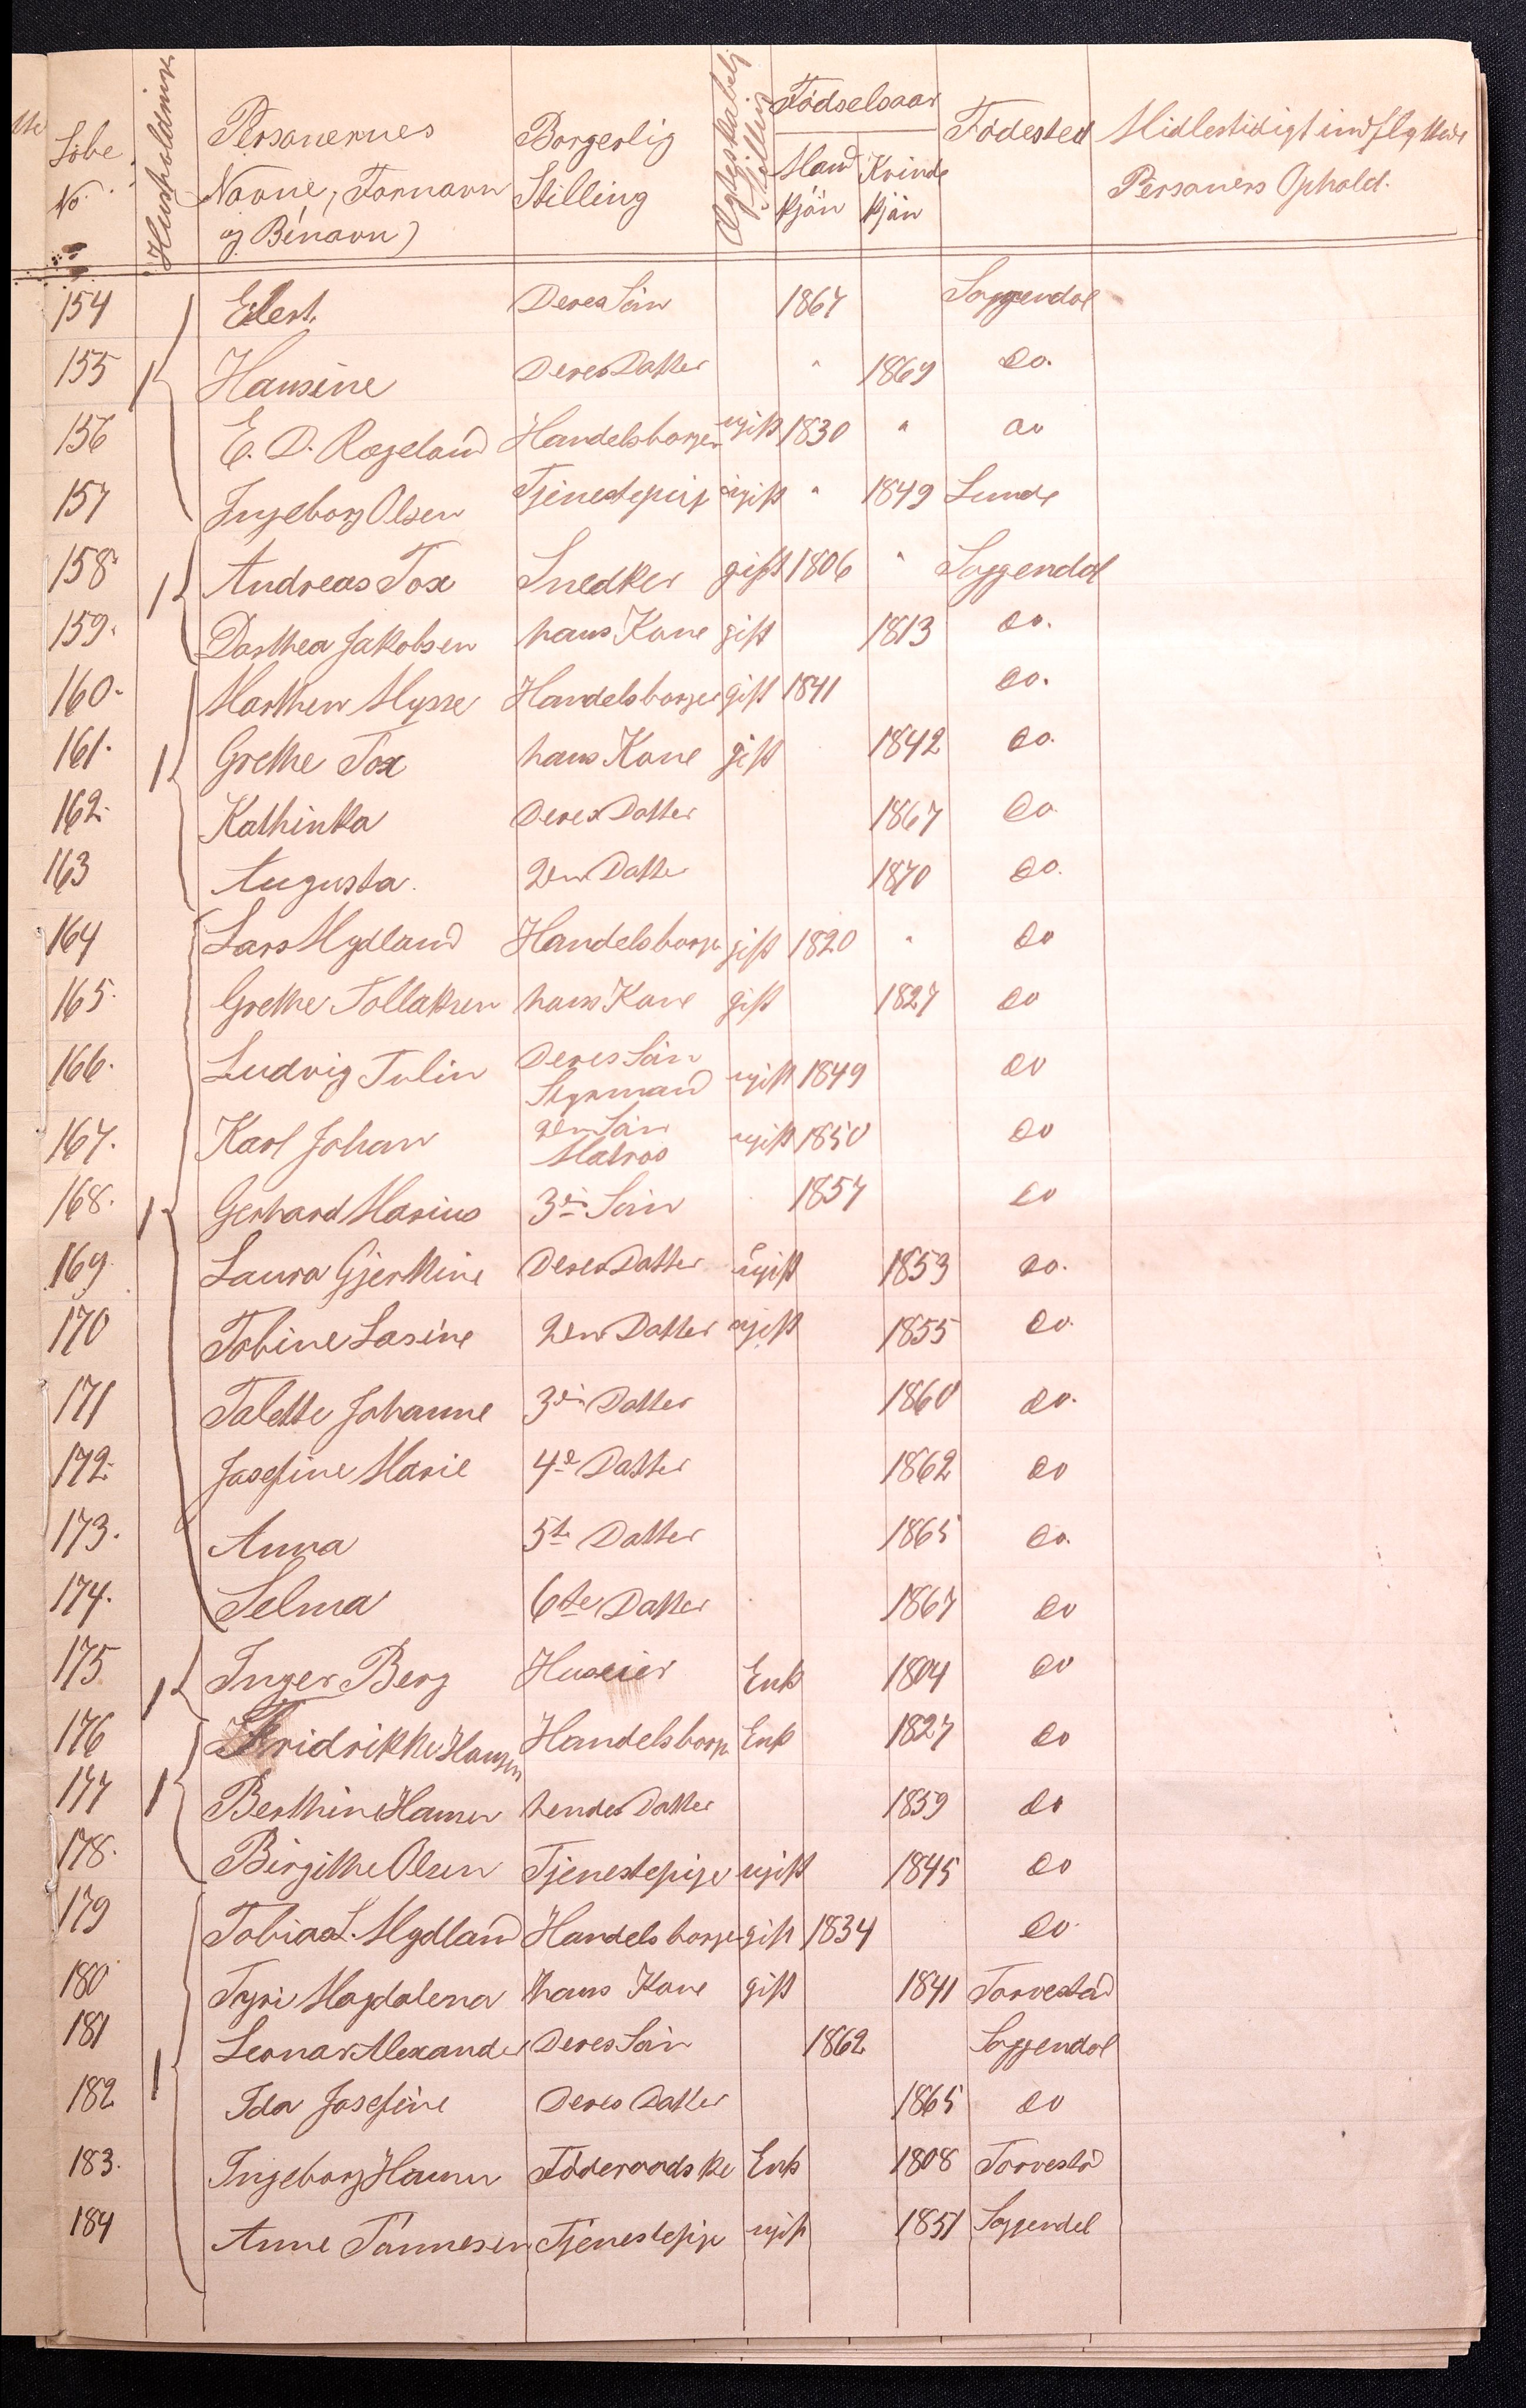 Löbe No. Husholdninger Personernes Navne, Fornavn og Binavn) Borgerlig Stilling Ægteskabelig Stilling Födselsaar Mand kjön Kvinde kjön Födested Midlertidigt indflyttede Personers Ophold.
154 Elert. Deres Sön 1867 Soggendal
155 1 Hansine Deres Datter " 1869 do.
156 E. D. Rægeland Handelsborger ugift 1830 " do
157 Ingeborg Olsen Tjenestepige ugift " 1849 Lunde
158 1 Andreas Tox Snedker gift 1806 " Soggendal
159. Dorthea Jakobsen hans Kone gift 1813 do.
160. Marthen Mysse Handelsborger gift 1841 do.
161. 1 Grethe Tox hans Kone gift 1842 do.
162. Kathinka Deres Datter 1867 do.
163 Augusta. 2den Datter 1870 do.
164 Lars Mydland Handelsborger gift 1820 " do
165. Grethe Tollaksen hans Kone gift 1827 do
166. Ludvig Tulin Deres Sön Styrmand ugift 1849 do
167. Karl Johan 2den Sön Matros ugift 1850 do
168. 1 Gerhard Marius 3di Sön 1857 do
169. Laura Gjerthine Deres Datter ugift 1853 do.
170 Tobine Lasine 2den Datter ugift 1855 do.
171 Talette Johanne 3di Datter 1860 do.
172. Josefine Marie 4de Datter 1862 do
173. Anna 5te Datter 1865 do.
174. Selma 6te Datter 1867 do
175 1 Inger Berg Huseier Enk 1804 do
176 Fridrikke Hansen Handelsborg Enk 1827 do
177 1 Berthine Hansen hendes Datter 1859 do
178. Birgitte Olsen Tjenestepige ugift 1845 do
179 Tobias L. Mydland Handelsborger gift 1834 do.
180 Tyri Magdalena hans Kone gift 1841 Torvestad
181 1 Leonar Alexander Deres Sön 1862. Soggendal
182 Ida Josefine Deres Datter 1865 do
183. Ingeborg Hansen Föderaadske Enk 1808 Torvestad
184 Anne Tönnesen Tjenestepige ugift 1851 Soggendal